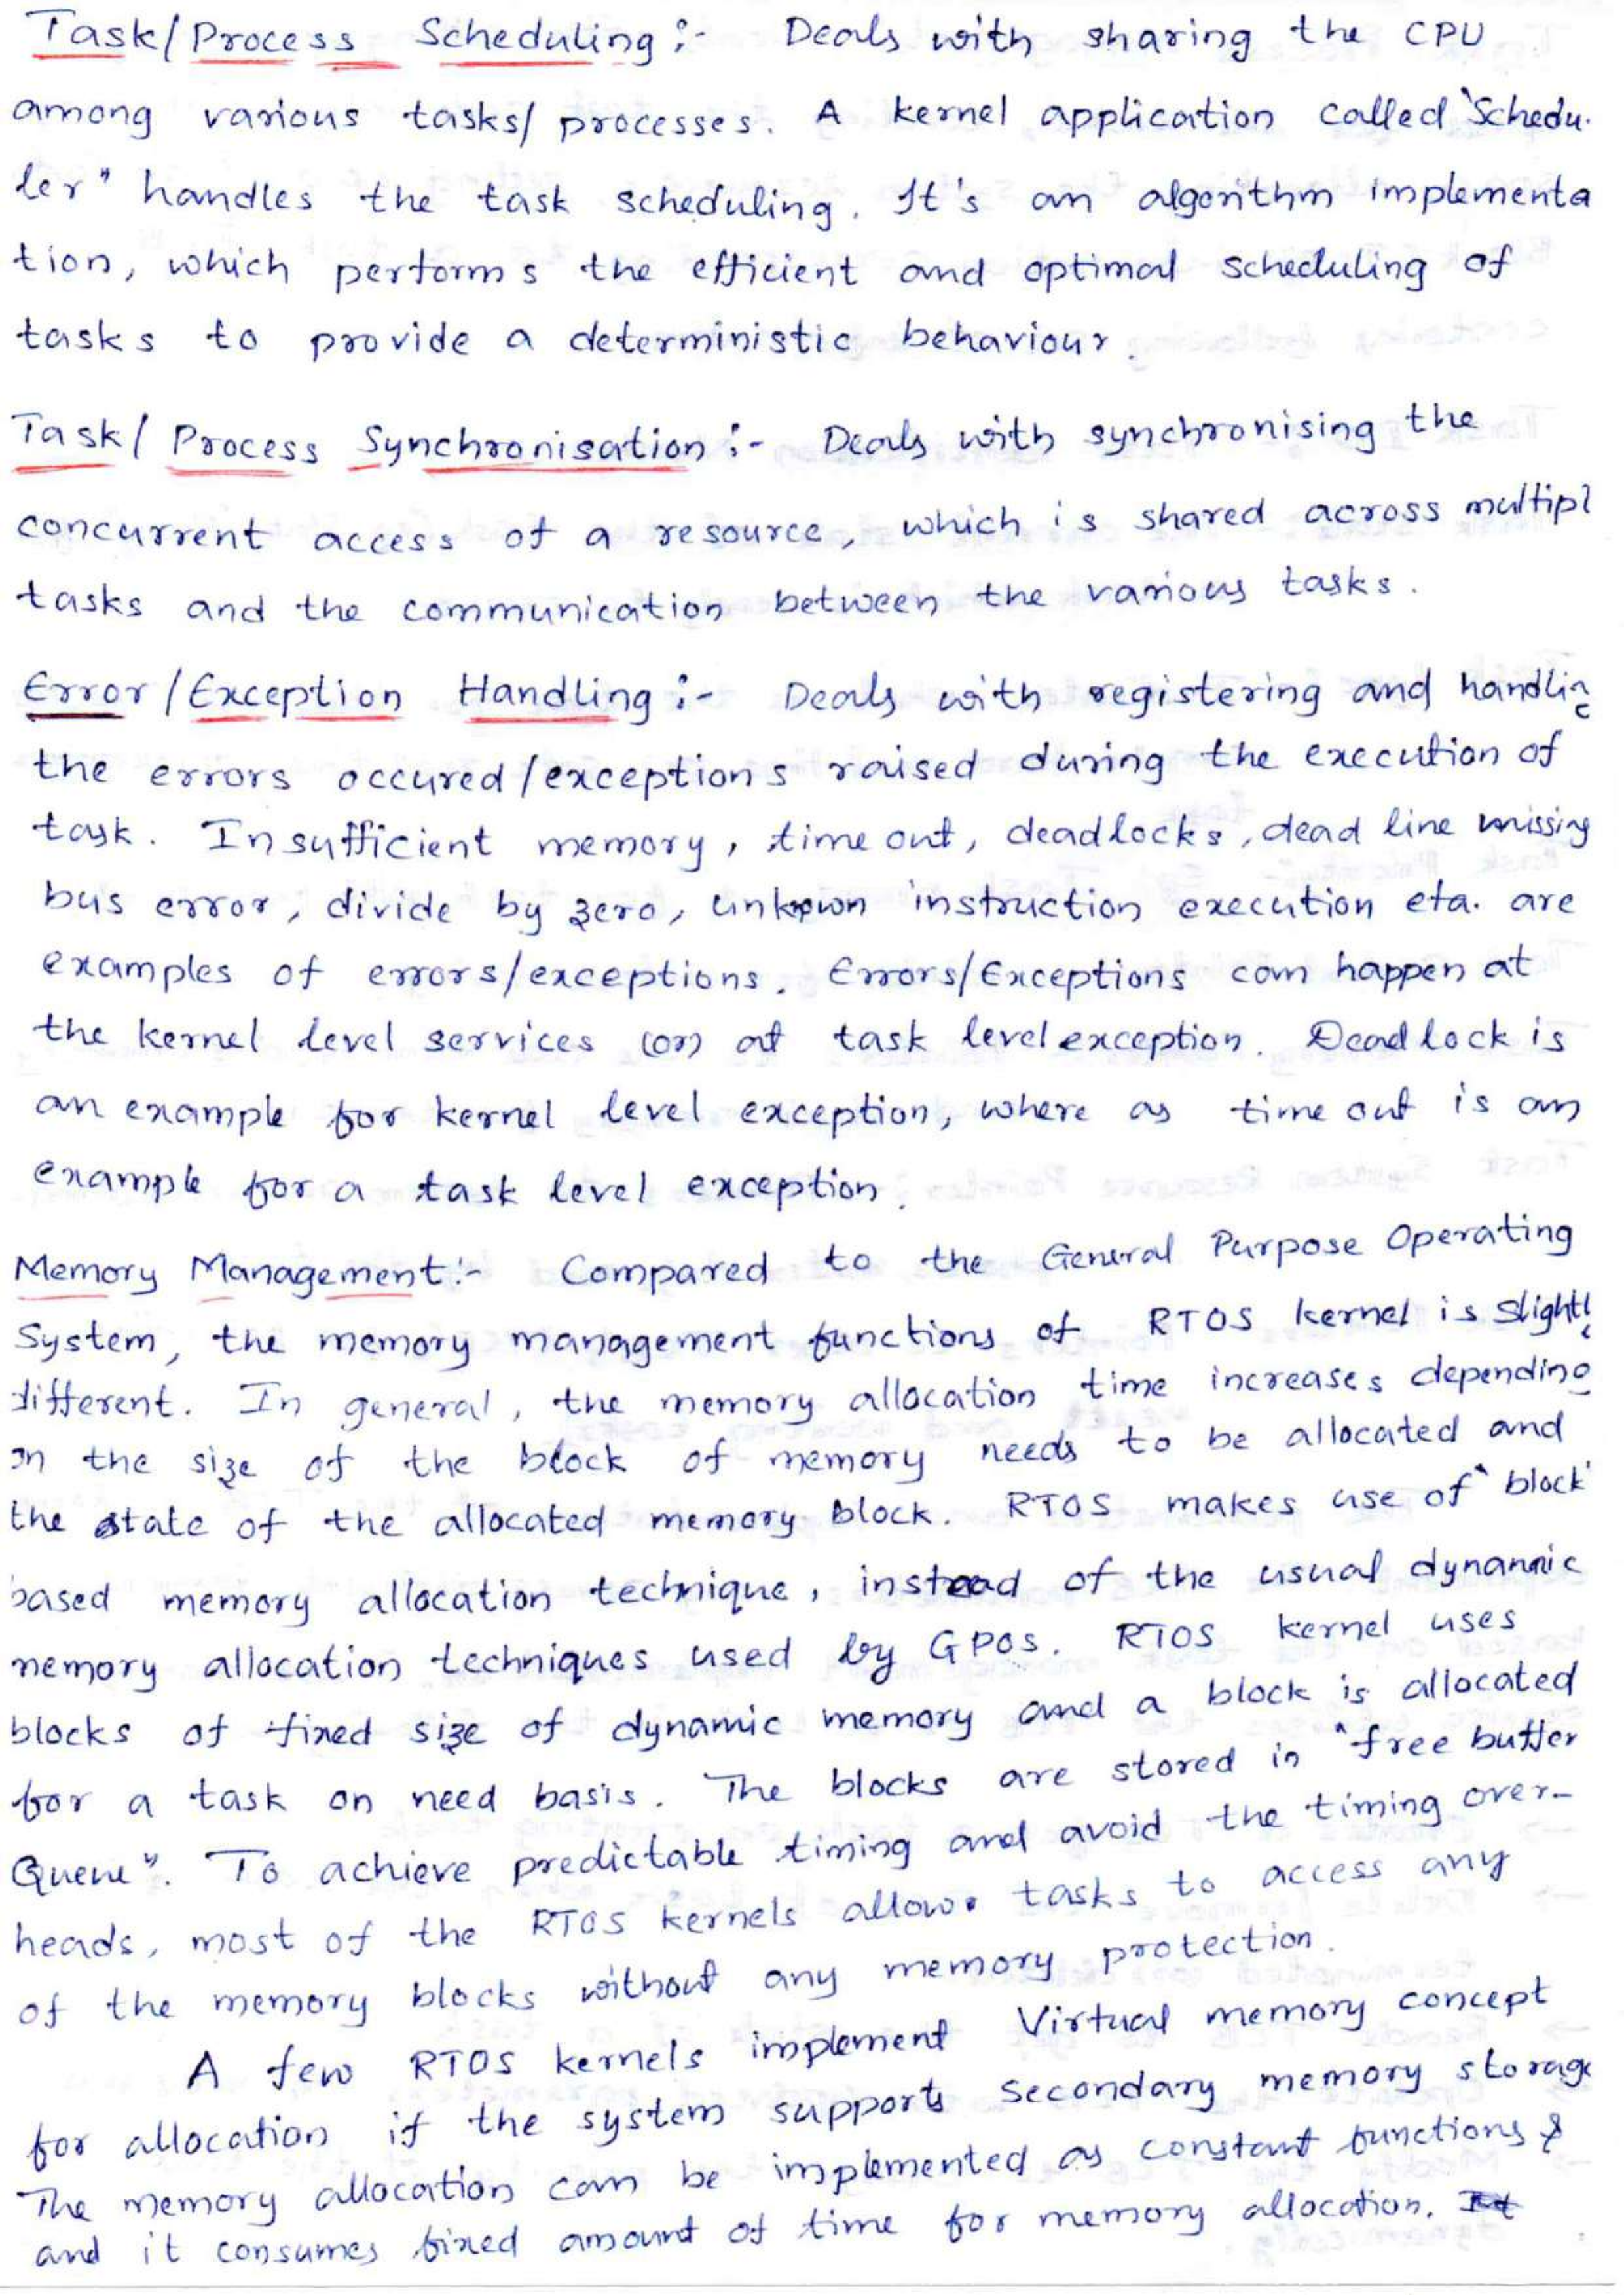 Task/Process Scheduling :- Deals with sharing the CPU
among various tasks/ processes. A kernel application called "Schedu.
ler" handles the task scheduling. It's an algorithm implementa
tion, which performs the efficient and optimal scheduling of
tasks to provide a deterministic behaviour.
Task/ Process Synchronisation :- Deals with synchronising the
concurrent access of a resource, which is shared across multipl
tasks and the communication between the various tasks.
Error/Exception Handling :- Deals with registering and handlin
the errors occured/exceptions raised during the execution of
task. Insufficient memory, time out, deadlocks, dead line missing
bus error, divide by zero, unknown instruction execution eta. are
examples of errors/exceptions. Errors/Exceptions can happen at
the kernel level services (or) at task level exception. Deadlock is
an example for kernel level exception, where as time out is an
example for a task level exception.
Memory Management :- Compared to the General Purpose Operating
System, the memory management functions of RTOS kernel is slightl
different. In general, the memory allocation time increases depending
on the size of the block of memory needs to be allocated and
the state of the allocated memory block. RTOS makes use of "block'
based memory allocation technique, instead of the usual dynamic
memory allocation techniques used by GPOS. RTOS kernel uses
blocks of fixed size of dynamic memory and a block is allocated
for a task on need basis. The blocks are stored in "free buffer
Queue". To achieve predictable timing and avoid the timing over-
heads, most of the RTOS kernels allows tasks to access any
of the memory blocks without any memory protection.
A few RTOS kernels implement Virtual memory concept
for allocation if the system supports secondary memory storage
The memory allocation can be implemented as constant functions &
and it consumes fixed amount of time for memory allocation.